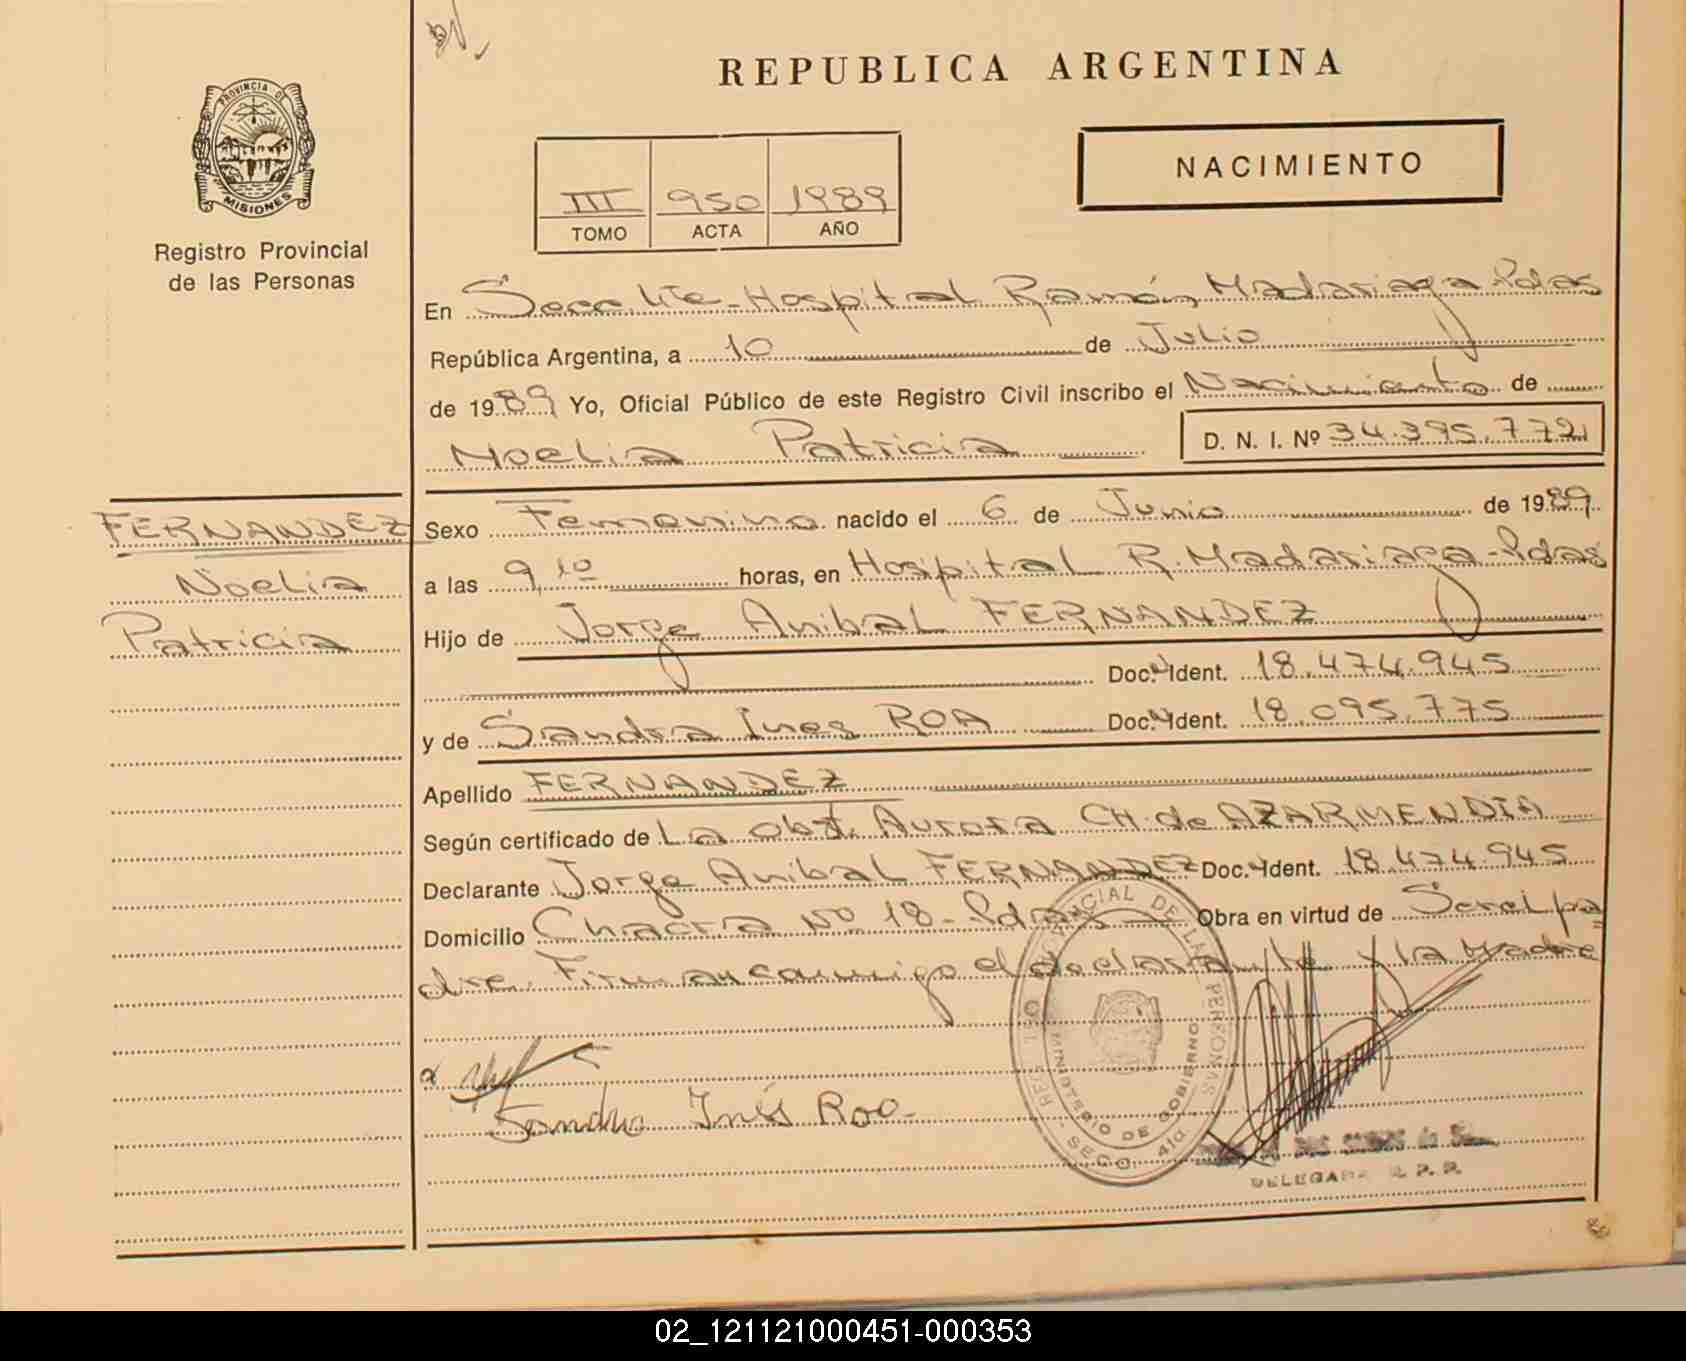 REPUBLICA ARGENTINA
PROVINCIA DE
MISIONES
Registro Provincial
de las Personas
III 950 1989
TOMO ACTA AÑO
NACIMIENTO
En Secc. 4ta - Hospital Ramón Madariaga - Pdas
República Argentina, a 10 de Julio
de 1989 Yo, Oficial Público de este Registro Civil inscribo el Nacimiento de
Noelia Patricia D. N. I. Nº 34.395.772
FERNANDEZ
Noelia
Patricia
Sexo Femenino nacido el 6 de Junio de 1989
a las 9,10 horas, en Hospital R. Madariaga - Pdas
Hijo de Jorge Anibal FERNANDEZ
Doc. Ident. 18.474.945
y de Sandra Ines ROA Doc. Ident. 18.095.775
Apellido FERNANDEZ
Según certificado de La obst. Aurora CH. de AZARMENDIA
Declarante Jorge Anibal FERNANDEZ Doc. Ident. 18.474.945
Domicilio Chacra Nº 18 - Pdas Obra en virtud de Ser el pa
dre. Firman conmigo el declarante y la Madre
Sandra Inés Roa
REG. PROVINCIAL DE LAS PERSONAS
MINISTERIO DE GOBIERNO
SECC. 4ta.
DELEGADA R. P. P.
02_121121000451-000353